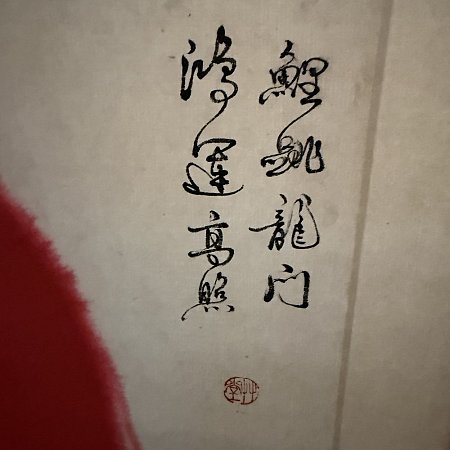 鯉跳龍门
鴻運高照